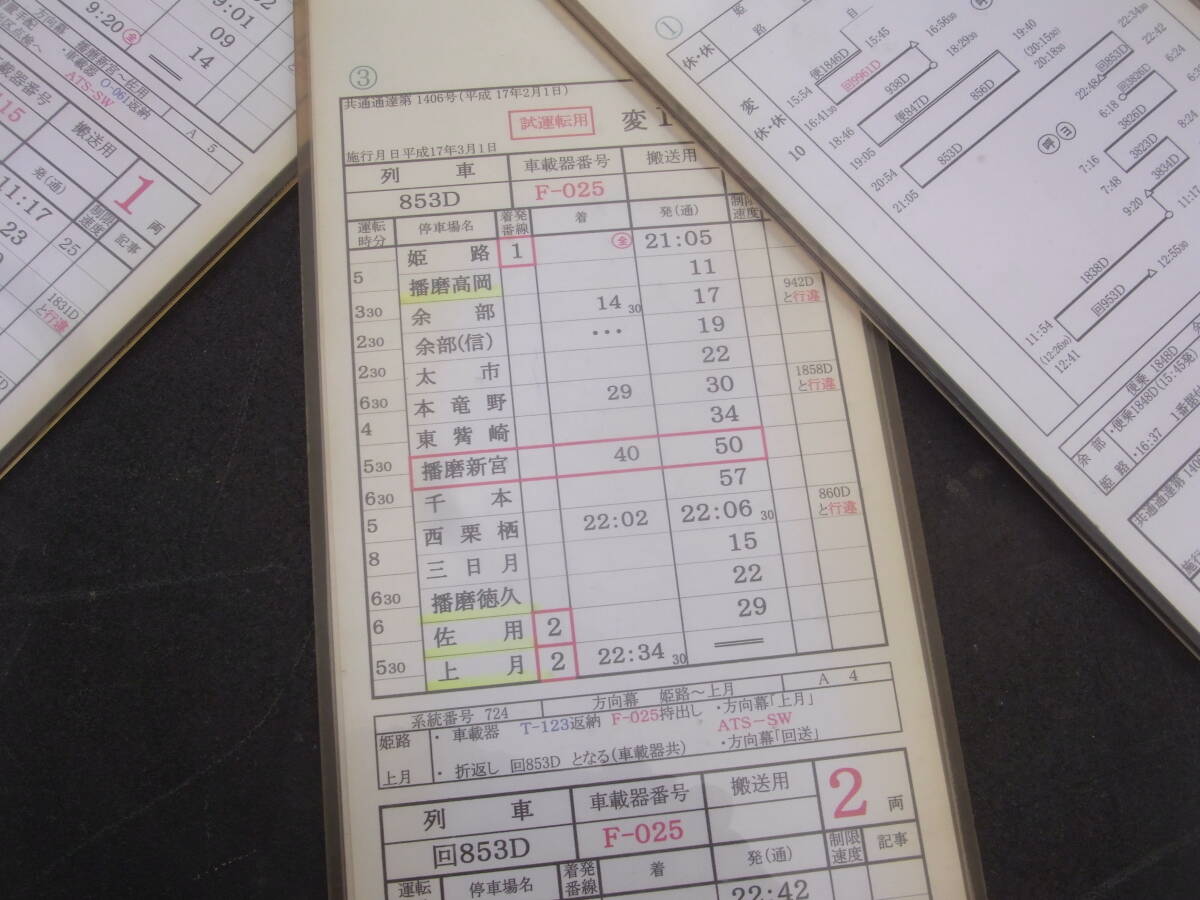 ③
共通通達第 1406号(平成 17年2月1日)
試運転用 変
施行月日 平成17年3月1日
列 車 車載器番号 搬送用
853D F-025
運転時分 停車場名 着発番線 着 発(通) 制限速度
姫 路 1 全 21:05
5
播磨高岡 11
3 30
余 部 14 30 17 942Dと行違
2 30
余部(信) … 19
2 30
太 市 22
6 30
本 竜 野 29 30 1858Dと行違
4
東 觜 崎 34
5 30
播磨新宮 40 50
6 30
千 本 57
5
西 栗 栖 22:02 22:06 30 860Dと行違
8
三 日 月 15
6 30
播磨徳久 22
6
佐 用 2 29
5 30
上 月 2 22:34 30
系統番号 724 方向幕 姫路～上月 A 4
姫路 ・ 車載器 T-123返納 F-025持出し ・方向幕「上月」
ATS-SW
上月 ・ 折返し 回853D となる(車載器共) ・方向幕「回送」
列 車 車載器番号 搬送用 2 両
回853D F-025
運転 停車場名 着発番線 着 発(通) 制限速度 記事
22:42
9:20 全
9:01
09
14
播磨新宮～佐用
・車載器 O-061返納
ATS-SW
A 5
載器番号 搬送用
115
1 両
発(通) 制限速度 記事
11:17
23
25
1831Dと行違
①
姫 路
休・休
変
休・休
10
便1846D
15:45
15:54
回9961D
16:56 30
16:41 30
938D
18:29 30
18:46
便847D
19:05
856D
19:40
(20:15 30)
20:18 30
20:54
853D
21:05
22:34 30
回853D
22:42
22:48
回3826D
6:24
6:18
3826D
呼 ヨ
7:16
3823D
8:24
7:48
3834D
9:20
11:54
1838D
12:55 30
(12:26 30)
回953D
12:41
便乗 1848D
余 部 ・便乗1848D(15:45発)
姫 路 ・16:37
共通通達第